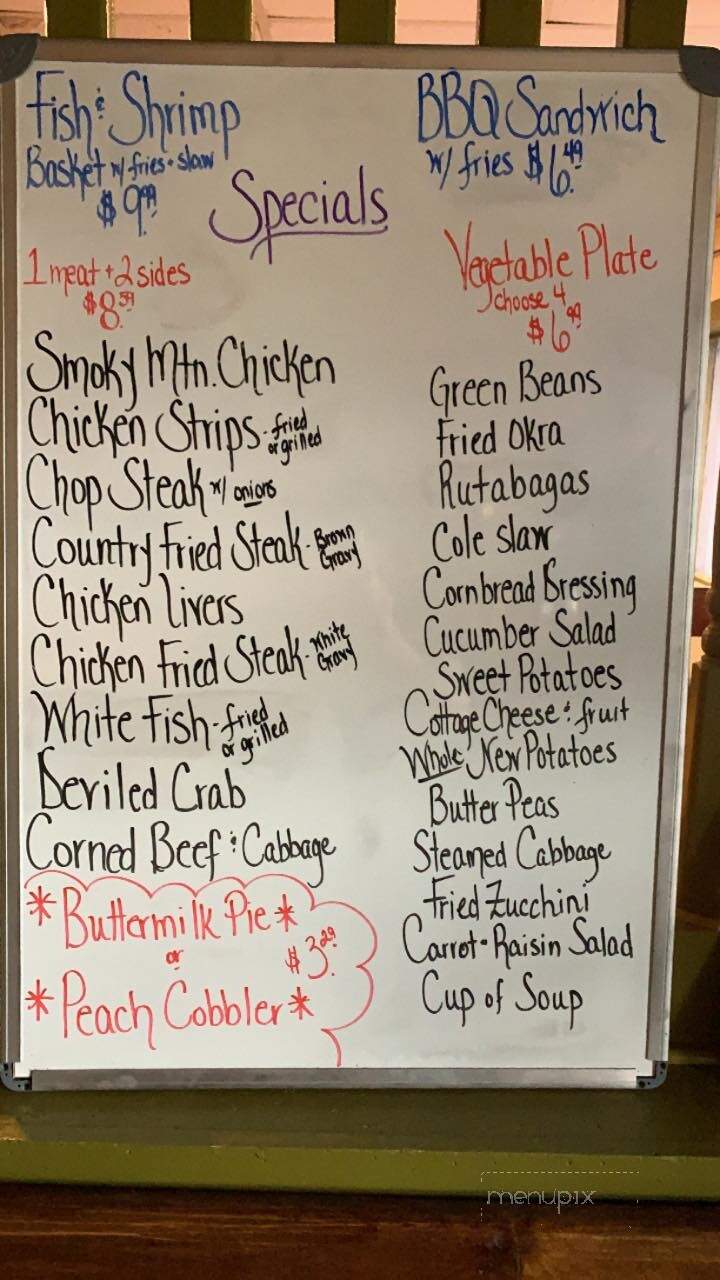 Fish & Shrimp
Basket w/ fries + slaw
$9.99
BBQ Sandwich
w/ fries $6.49
Specials
1 meat + 2 sides
$8.59
Smoky Mtn. Chicken
Chicken Strips - fried or grilled
Chop Steak w/ onions
Country Fried Steak - Brown Gravy
Chicken Livers
Chicken Fried Steak - White Gravy
White Fish - fried or grilled
Deviled Crab
Corned Beef & Cabbage
*Buttermilk Pie*
or $3.29
*Peach Cobbler*
Vegetable Plate
choose 4
$6.99
Green Beans
Fried Okra
Rutabagas
Cole Slaw
Cornbread Dressing
Cucumber Salad
Sweet Potatoes
Cottage Cheese & fruit
Whole New Potatoes
Butter Peas
Steamed Cabbage
Fried Zucchini
Carrot-Raisin Salad
Cup of Soup
menupix